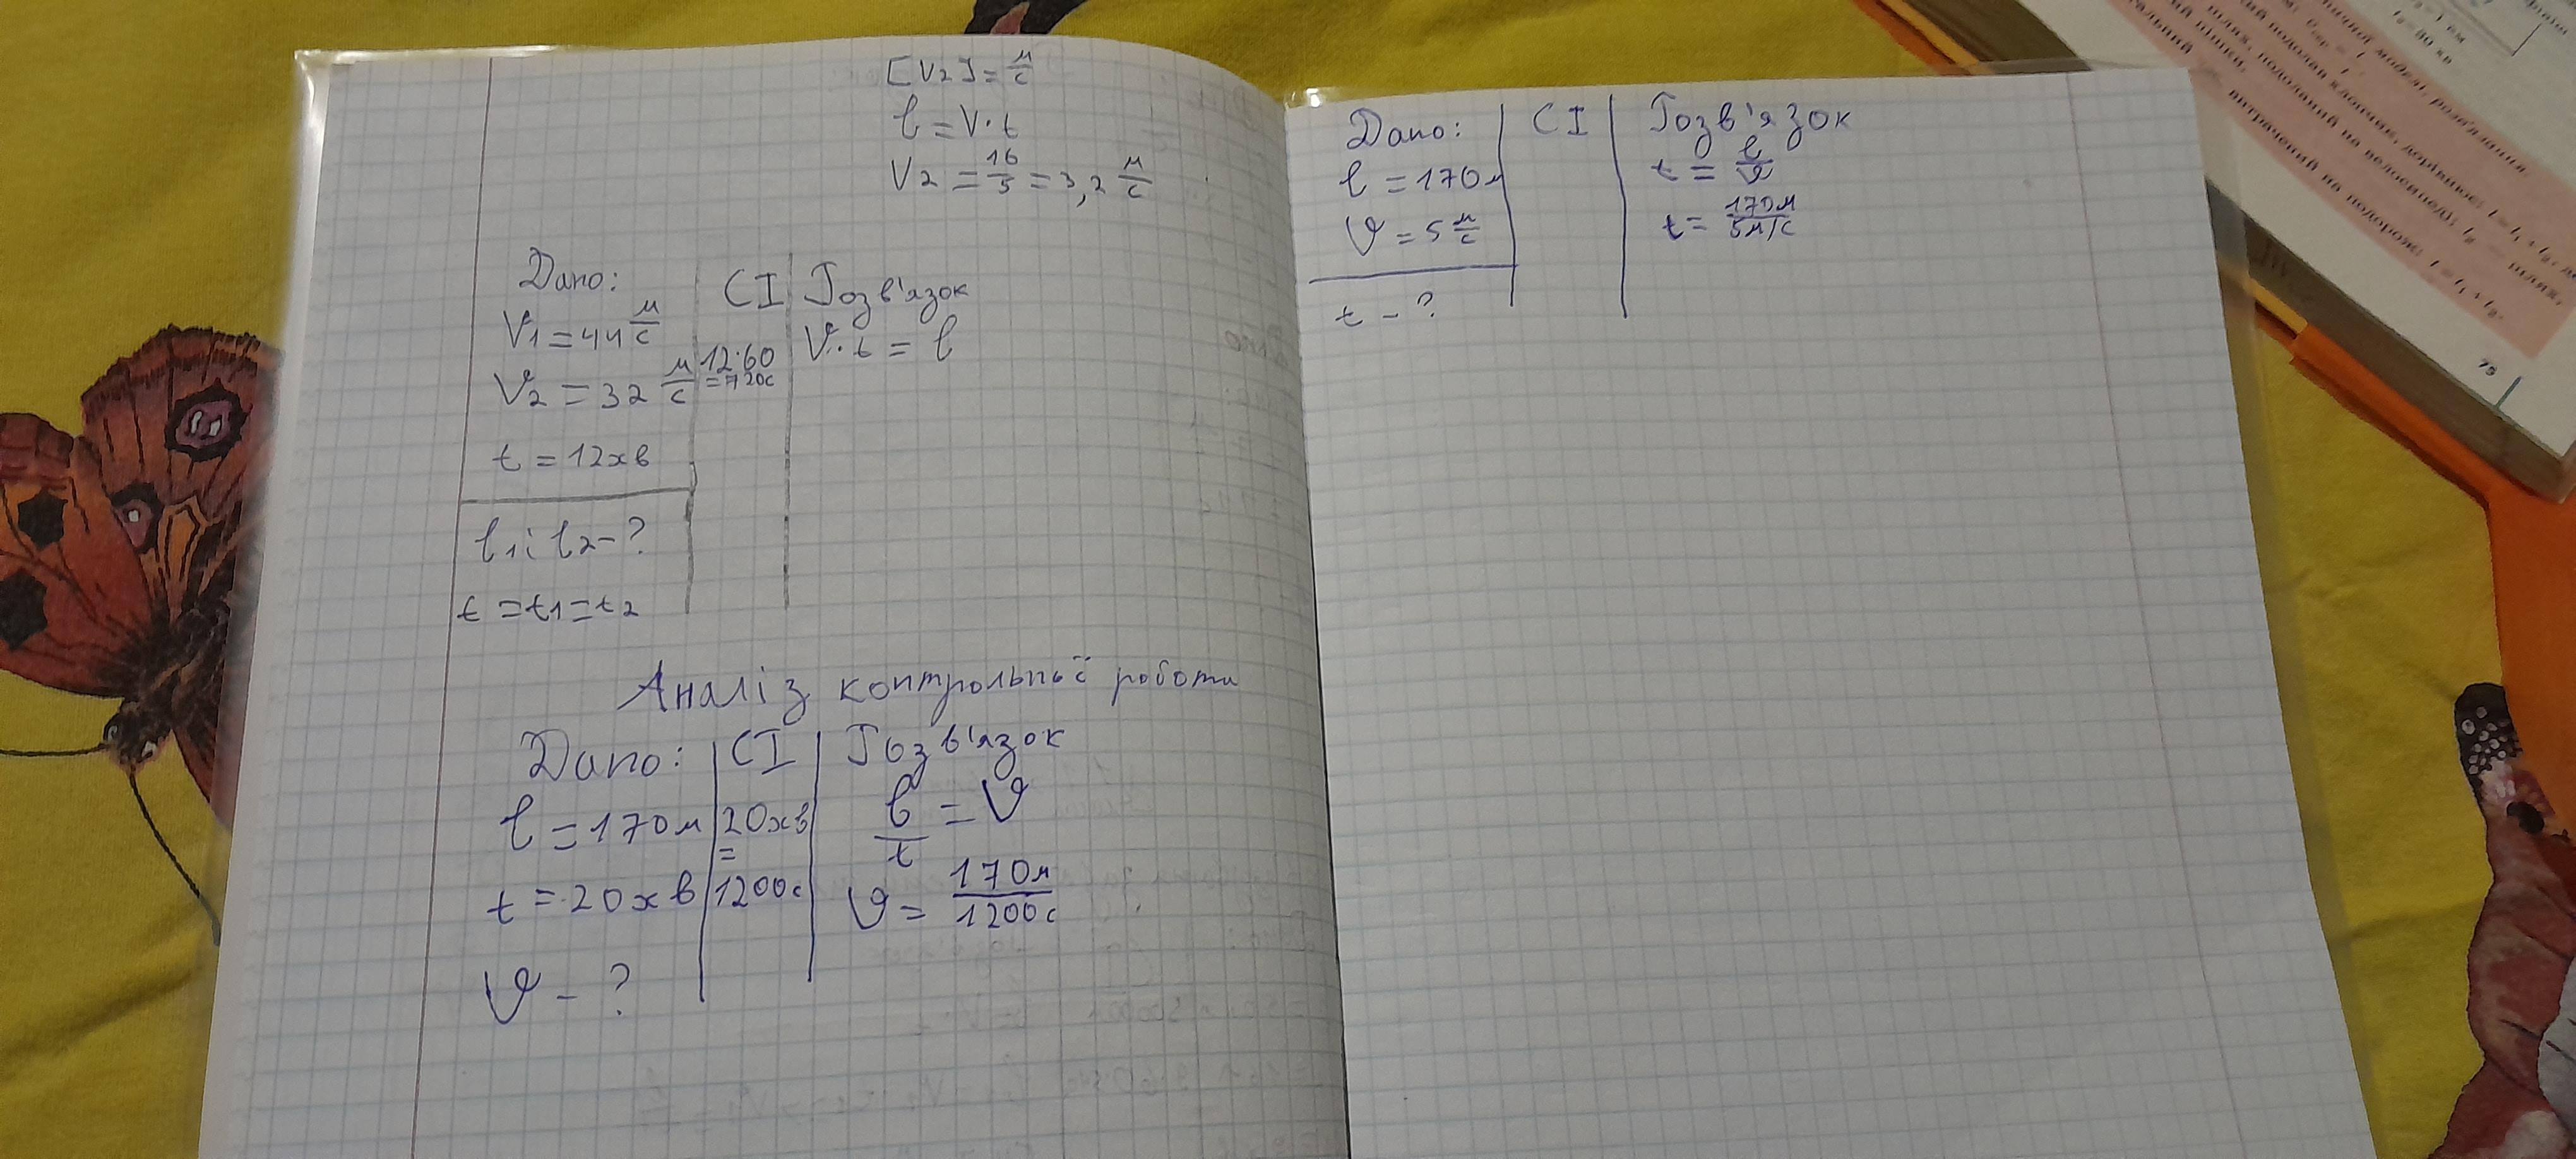 [V2] = м/с
l = V · t
V2 = 16/5 = 3,2 м/с
Дано: СІ Розв'язок
V1 = 44 м/с
V2 = 32 м/с 12·60 V · t = l
= 720с
t = 12хв
l1 і l2 - ?
t = t1 = t2
Аналіз контрольної роботи
Дано: СІ Розв'язок
l = 170м 20хв l/t = V
=
t = 20хв 1200с V = 170м/1200с
V - ?
Дано: СІ Розв'язок
l = 170м t = l/V
V = 5 м/с t = 170м/5м/с
t - ?
75